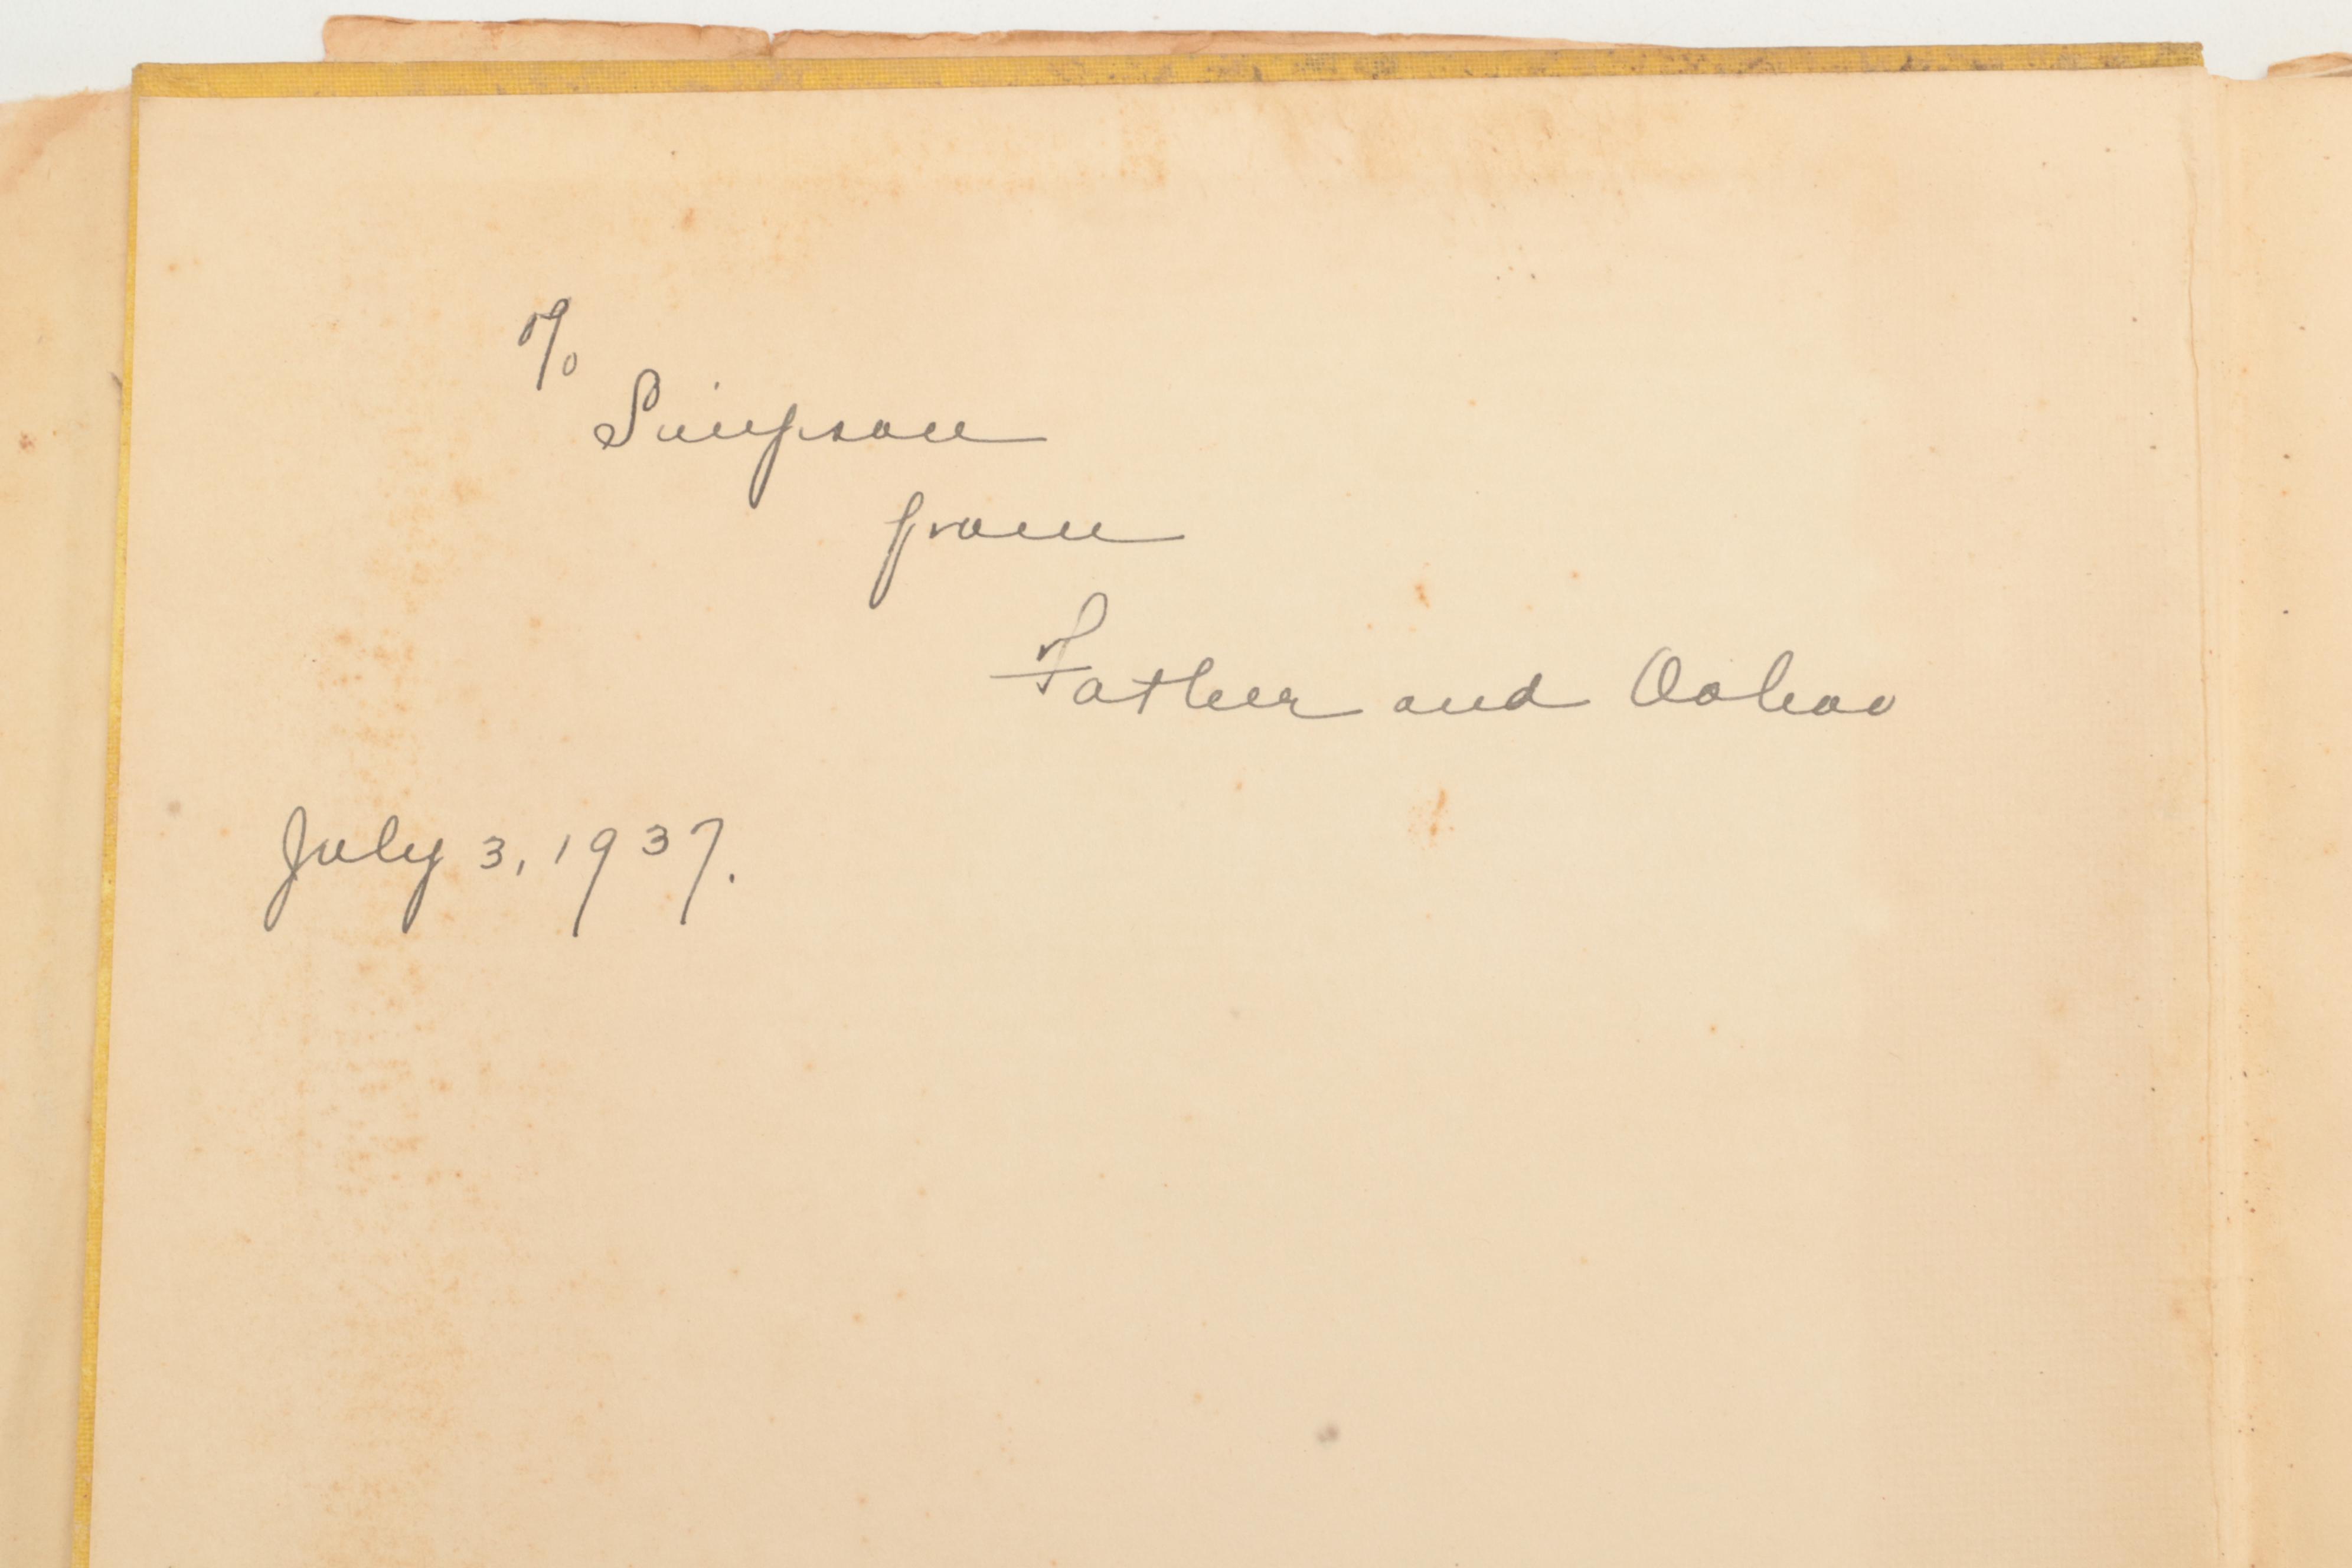 To
Simpson
from
Father and
July 3, 1937.